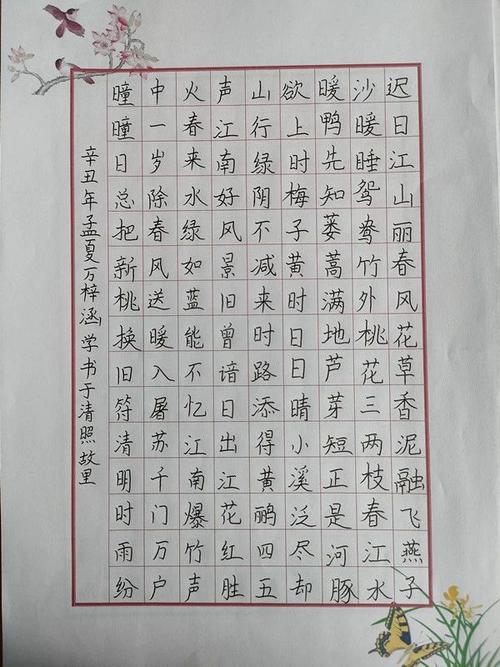 迟日江山丽春风花草香泥融飞燕子
沙暖睡鸳鸯竹外桃花三两枝春江水
暖鸭先知蒌蒿满地芦芽短正是河豚
欲上时梅子黄时日日晴小溪泛尽却
山行绿阴不减来时路添得黄鹂四五
声江南好风景旧曾谙日出江花红胜
火春来水绿如蓝能不忆江南爆竹声
中一岁除春风送暖入屠苏千门万户
瞳瞳日总把新桃换旧符清明时雨纷
辛丑年孟夏万梓涵学书于清照故里